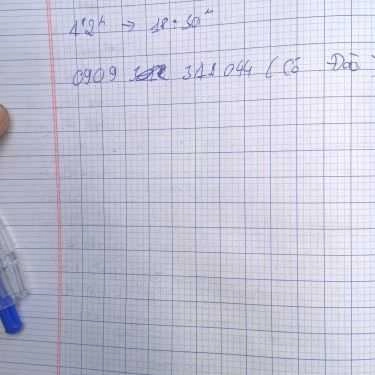 12h → 18:30"
0909 311 044 (Cô Đào)